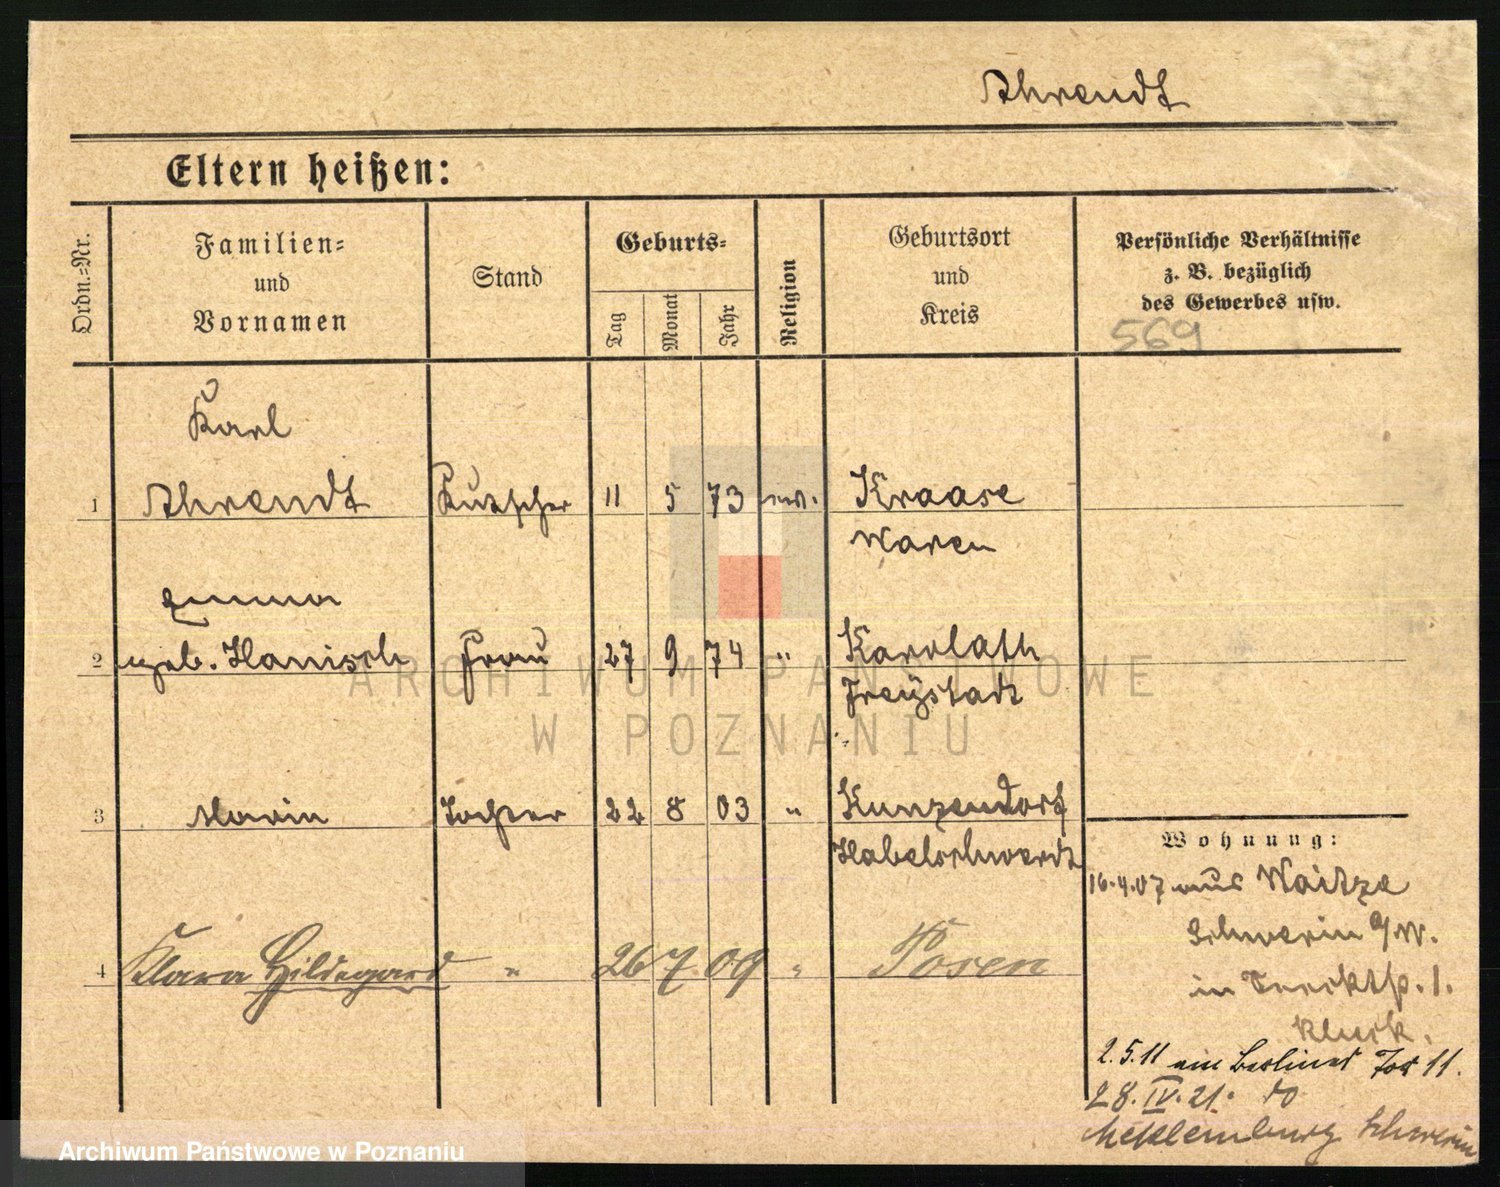 Ahrendt
Eltern heißen:
Ordn.=Nr.
Familien=
und
Vornamen
Stand
Geburts=
Tag
Monat
Jahr
Religion
Geburtsort
und
Kreis
Persönliche Verhältnisse
z. B. bezüglich
des Gewerbes usw.
569
Karl
1 Ahrendt Kutscher 11 5 73 Kraase
Waren
Emma
2 geb. Hanisch Frau 27 9 74 " Karolath
Freystadt
3 Tochter 22 8 03 " Kunzendorf
Habelschwerdt
4 Klara Hildegard " 26 7 09 " Posen
Wohnung:
16.4.07 aus Waitze
Schwerin a/W.
in
2.5.11 am Berliner Tor 11.
28.IV.21.
Mecklemburg Schwerin
ARCHIWUM PAŃSTWOWE
W POZNANIU
Archiwum Państwowe w Poznaniu